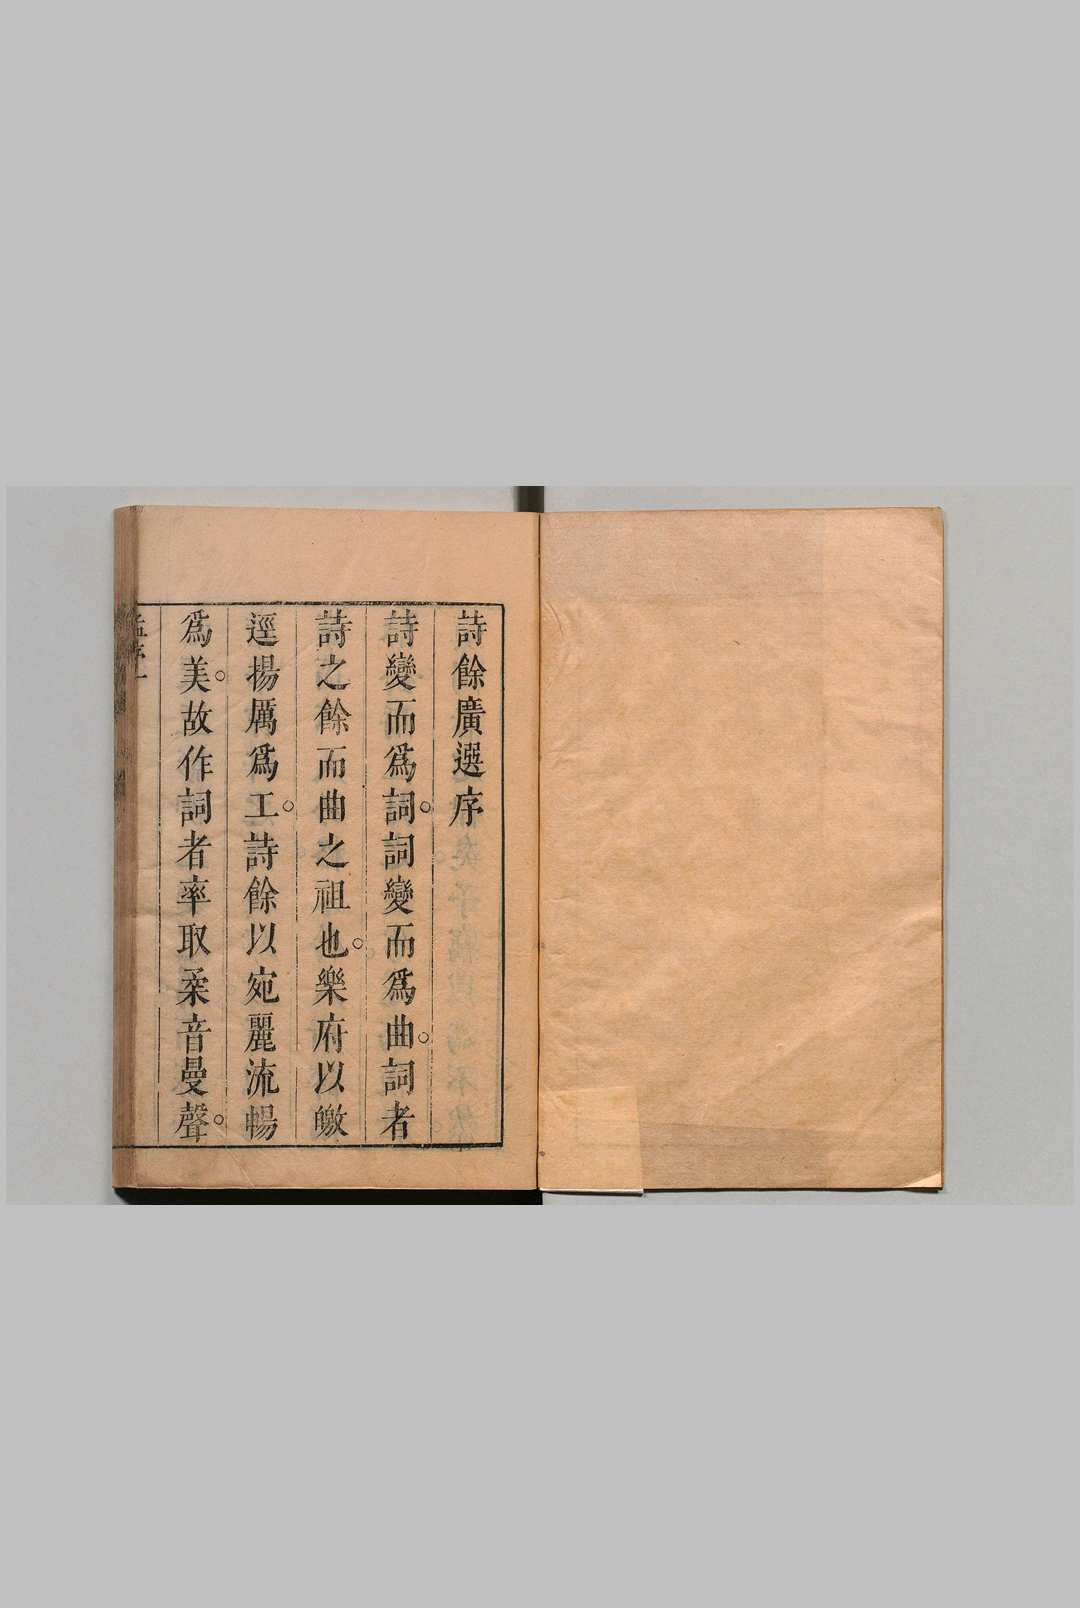 詩餘廣選序
詩變而爲詞。詞變而爲曲。詞者
詩之餘而曲之祖也。樂府以皦
逕揚厲爲工。詩餘以宛麗流暢
爲美。故作詞者率取柔音曼聲。